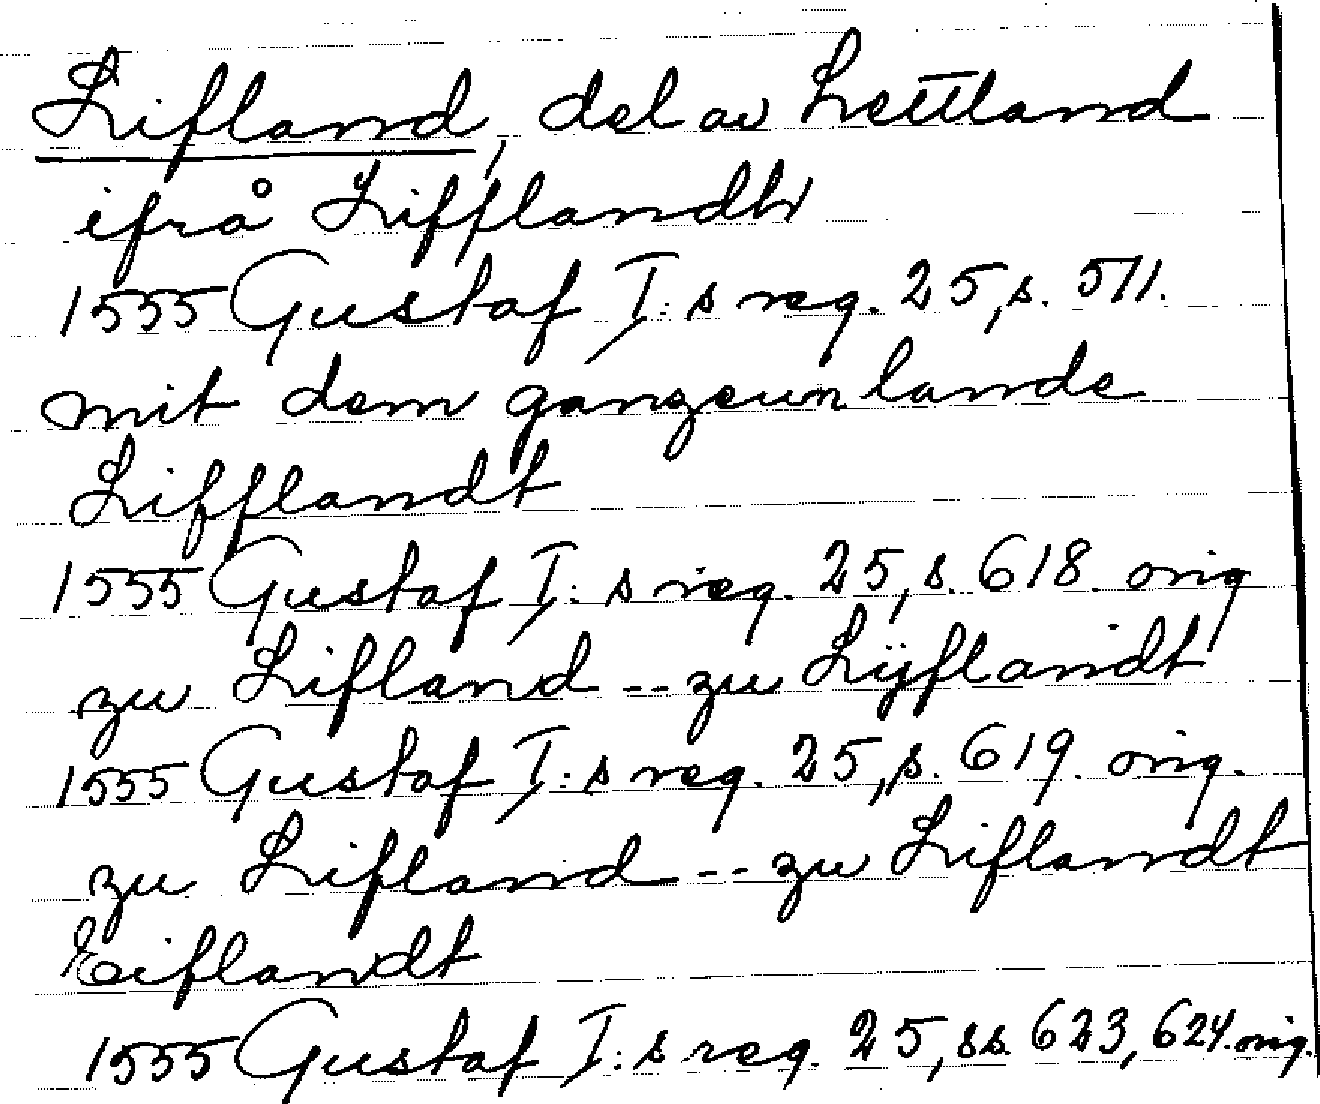 Lifland, del av Lettland
ifrå Lifflandh
1555 Gustaf I:s reg. 25, s. 511.
mit dem ganzeun lande
Lifflandt
1555 Gustaf I:s reg. 25, s. 618. orig
zu Lifland -- zu Lÿflandt
1555 Gustaf I:s reg. 25, s. 619. orig.
zu Lifland -- zu Liflandt
Eiflandt
1555 Gustaf I:s reg. 25, ss. 623, 624. orig.